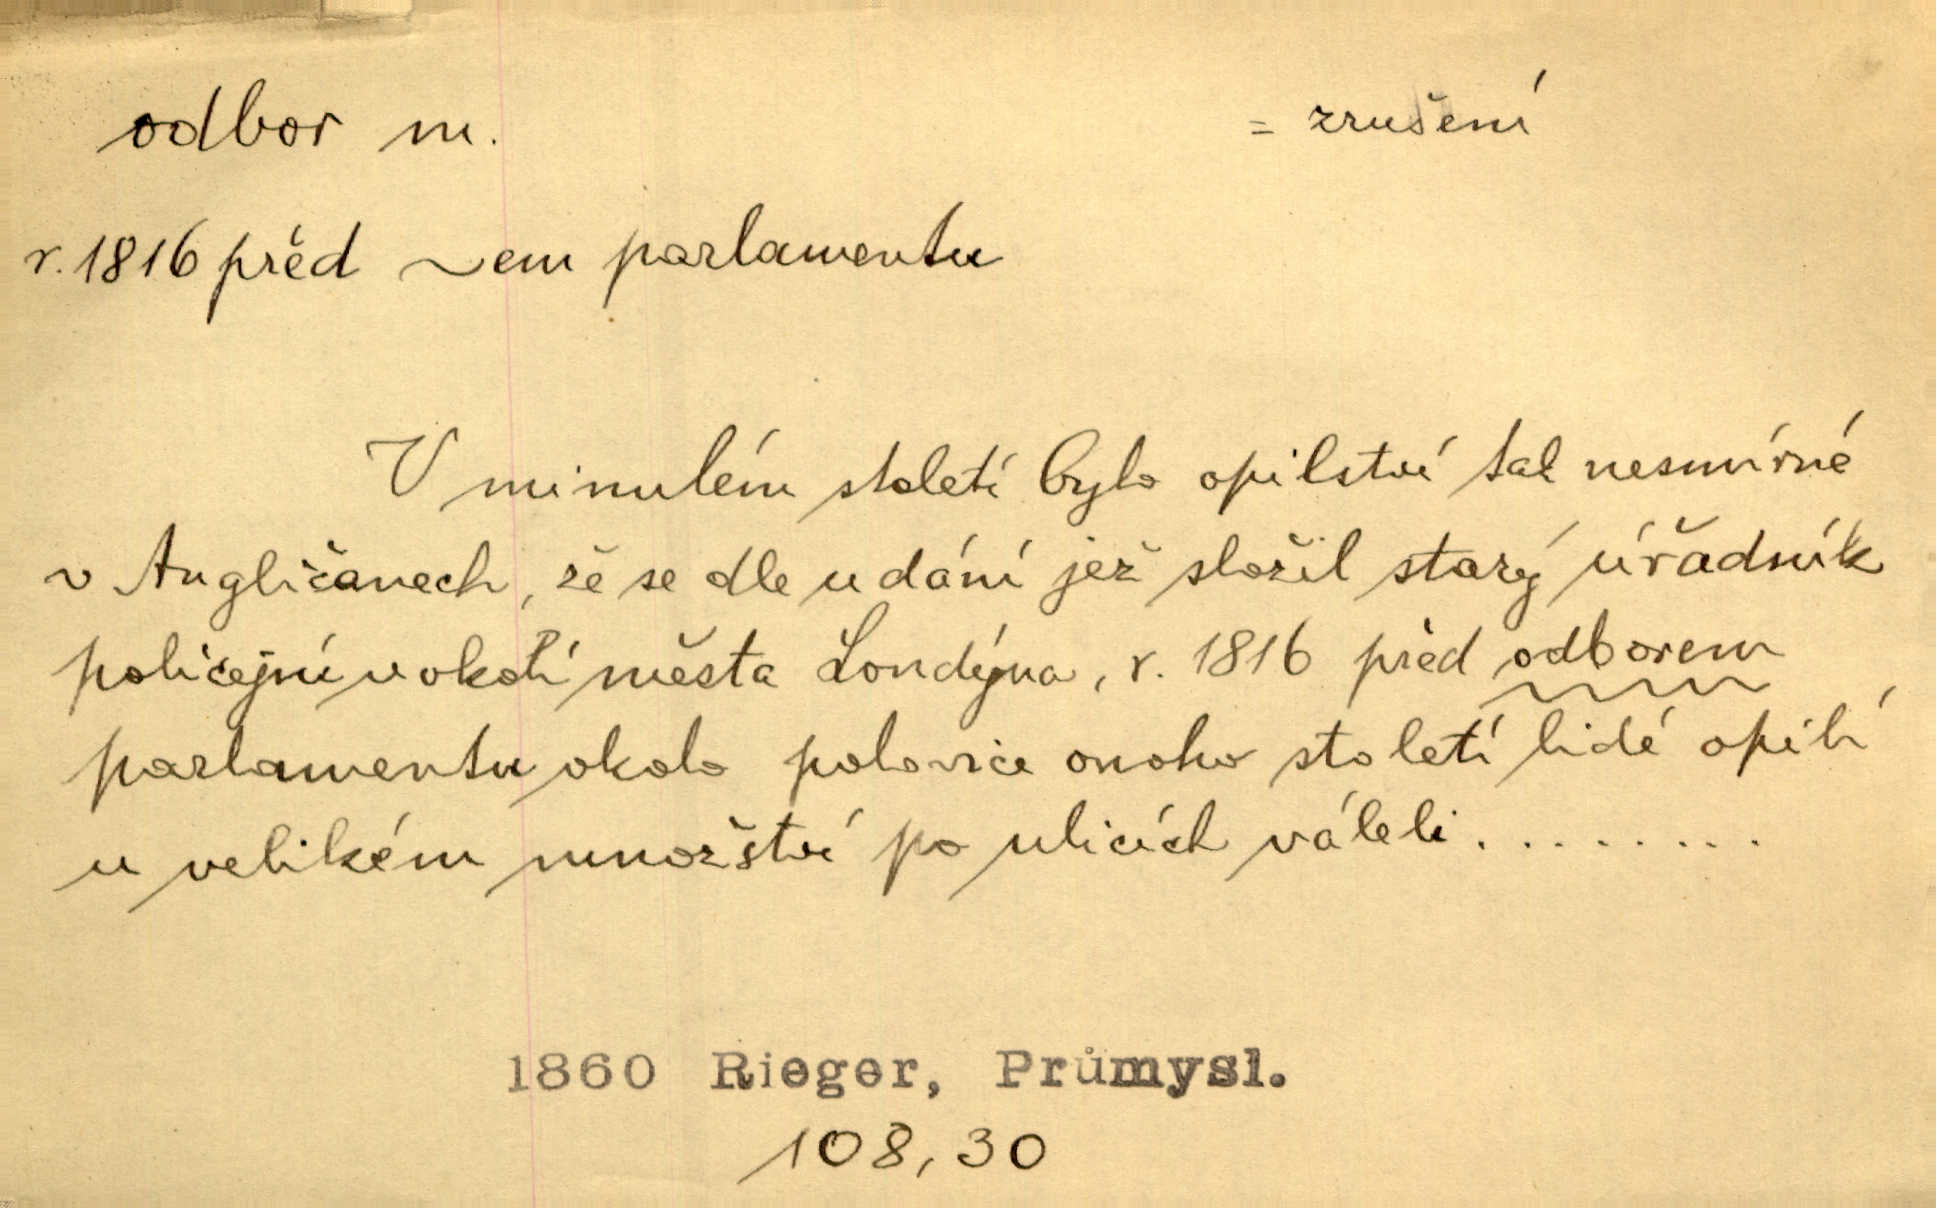 odbor m. = zrušení
r. 1816 před ~em parlamentu
V minulém století bylo opilství tak nesmírné
v Angličanech, že se dle udání jež složil starý úřadník
policejní v okolí města Londýna, r. 1816 před odborem
parlamentu okolo polovice onoho století lidé opilí
u velikém množství po ulicích váleli.........
1860 Rieger, Průmysl.
108,30